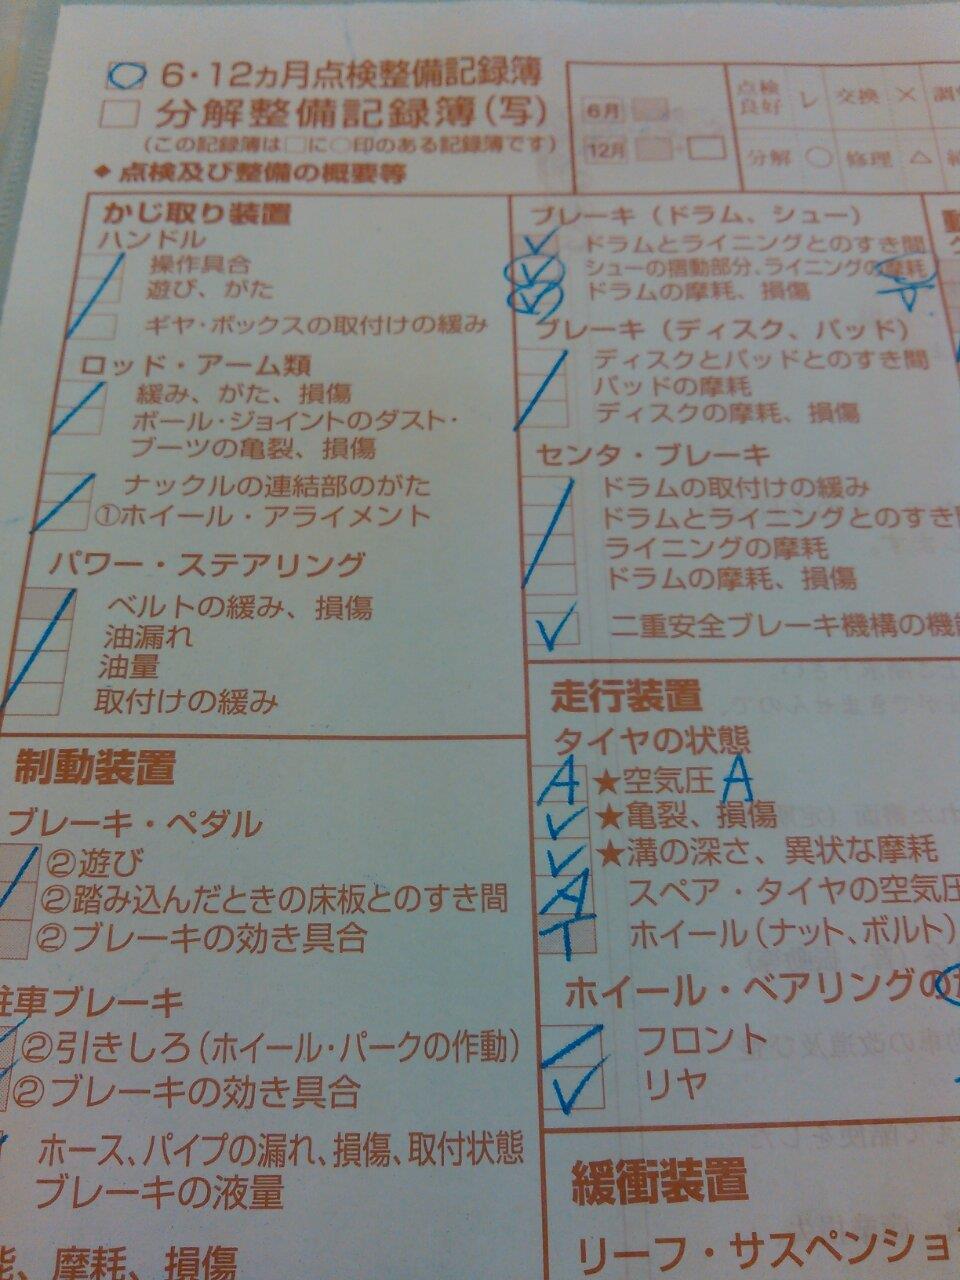 6・12ヵ月点検整備記録簿
分解整備記録簿(写)
(この記録簿は□に○印のある記録簿です)
6月
12月
点検良好 レ 交換 ×
分解 ○ 修理 △
◆点検及び整備の概要等
かじ取り装置
ハンドル
操作具合
遊び、がた
ギヤ・ボックスの取付けの緩み
ロッド・アーム類
緩み、がた、損傷
ボール・ジョイントのダスト・
ブーツの亀裂、損傷
ナックルの連結部のがた
①ホイール・アライメント
パワー・ステアリング
ベルトの緩み、損傷
油漏れ
油量
取付けの緩み
制動装置
ブレーキ・ペダル
②遊び
②踏み込んだときの床板とのすき間
②ブレーキの効き具合
駐車ブレーキ
②引きしろ(ホイール・パークの作動)
②ブレーキの効き具合
ホース、パイプの漏れ、損傷、取付状態
ブレーキの液量
能、摩耗、損傷
ブレーキ(ドラム、シュー)
ドラムとライニングとのすき間
シューの摺動部分、ライニングの摩耗
ドラムの摩耗、損傷
ブレーキ(ディスク、パッド)
ディスクとパッドとのすき間
パッドの摩耗
ディスクの摩耗、損傷
センタ・ブレーキ
ドラムの取付けの緩み
ドラムとライニングとのすき間
ライニングの摩耗
ドラムの摩耗、損傷
二重安全ブレーキ機構の機能
走行装置
タイヤの状態
A ★空気圧 A
★亀裂、損傷
★溝の深さ、異状な摩耗
A スペア・タイヤの空気圧
T ホイール(ナット、ボルト)
ホイール・ベアリングの
フロント
リヤ
緩衝装置
リーフ・サスペンショ